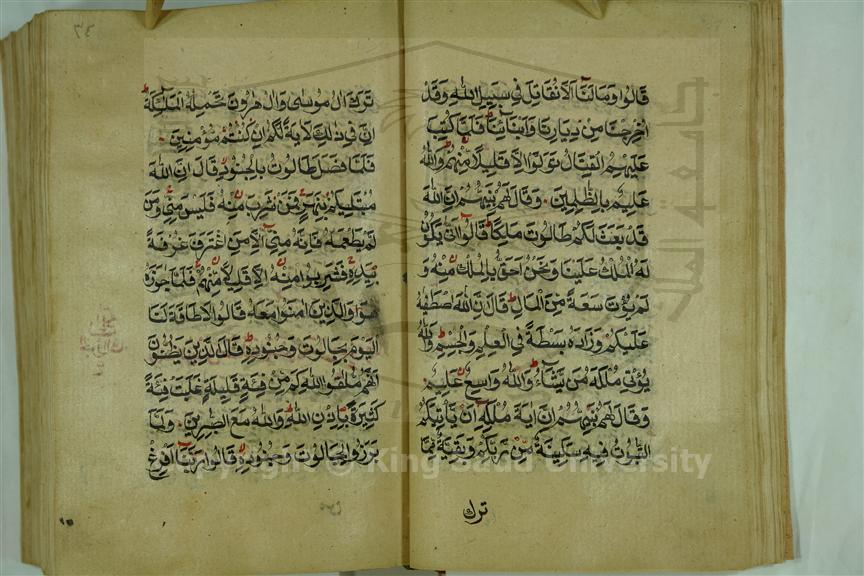 قالوا وما لنا الا نقاتل في سبيل الله وقد
اخرجنا من ديارنا وابنائنا فلما كتب
عليهم القتال تولوا الا قليلا منهم والله
عليم بالظلمين وقال لهم نبيهم ان الله
قد بعث لكم طالوت ملكا قالوا انى يكون
له الملك علينا ونحن احق بالملك منه و
لم يؤت سعة من المال قال ان الله اصطفه
عليكم وزاده بسطة في العلم والجسم والله
يؤتي ملكه من يشاء والله واسع عليم
وقال لهم نبيهم ان اية ملكه ان ياتيكم
التبوت فيه سكينة من ربكم وبقية مما
ترك
٣٤
ترك ال موسى وال هرون تحمله الملئكة
ان في ذلك لاية لكم ان كنتم مؤمنين
فلما فصل طالوت بالجنود قال ان الله
مبتليكم بنهر فمن شرب منه فليس مني ومن
لم يطعمه فانه مني الا من اغترف غرفة
بيده فشربوا منه الا قليلا منهم فلما جاوزه
هو والذين امنوا معه قالوا لا طاقة لنا
اليوم بجالوت وجنوده قال الذين يظنون
انهم ملقوا الله كم من فئة قليلة غلبت فئة
كثيرة باذن الله والله مع الصبرين ولما
برزوا لجالوت وجنوده قالوا ربنا افرغ
جامعة الملك
Copyright © King Saud University